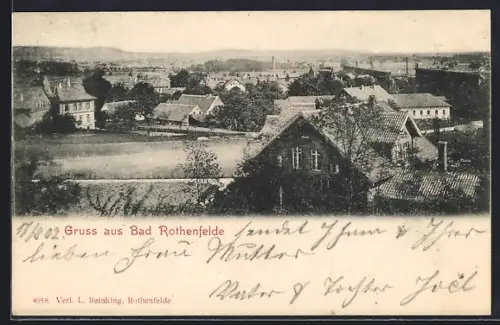 17/8 02. Gruss aus Bad Rothenfelde sendet Ihnen & Ihrer
lieben Frau Mutter
Vater & Tochter
4958 Verl. L. Reinking, Rothenfelde